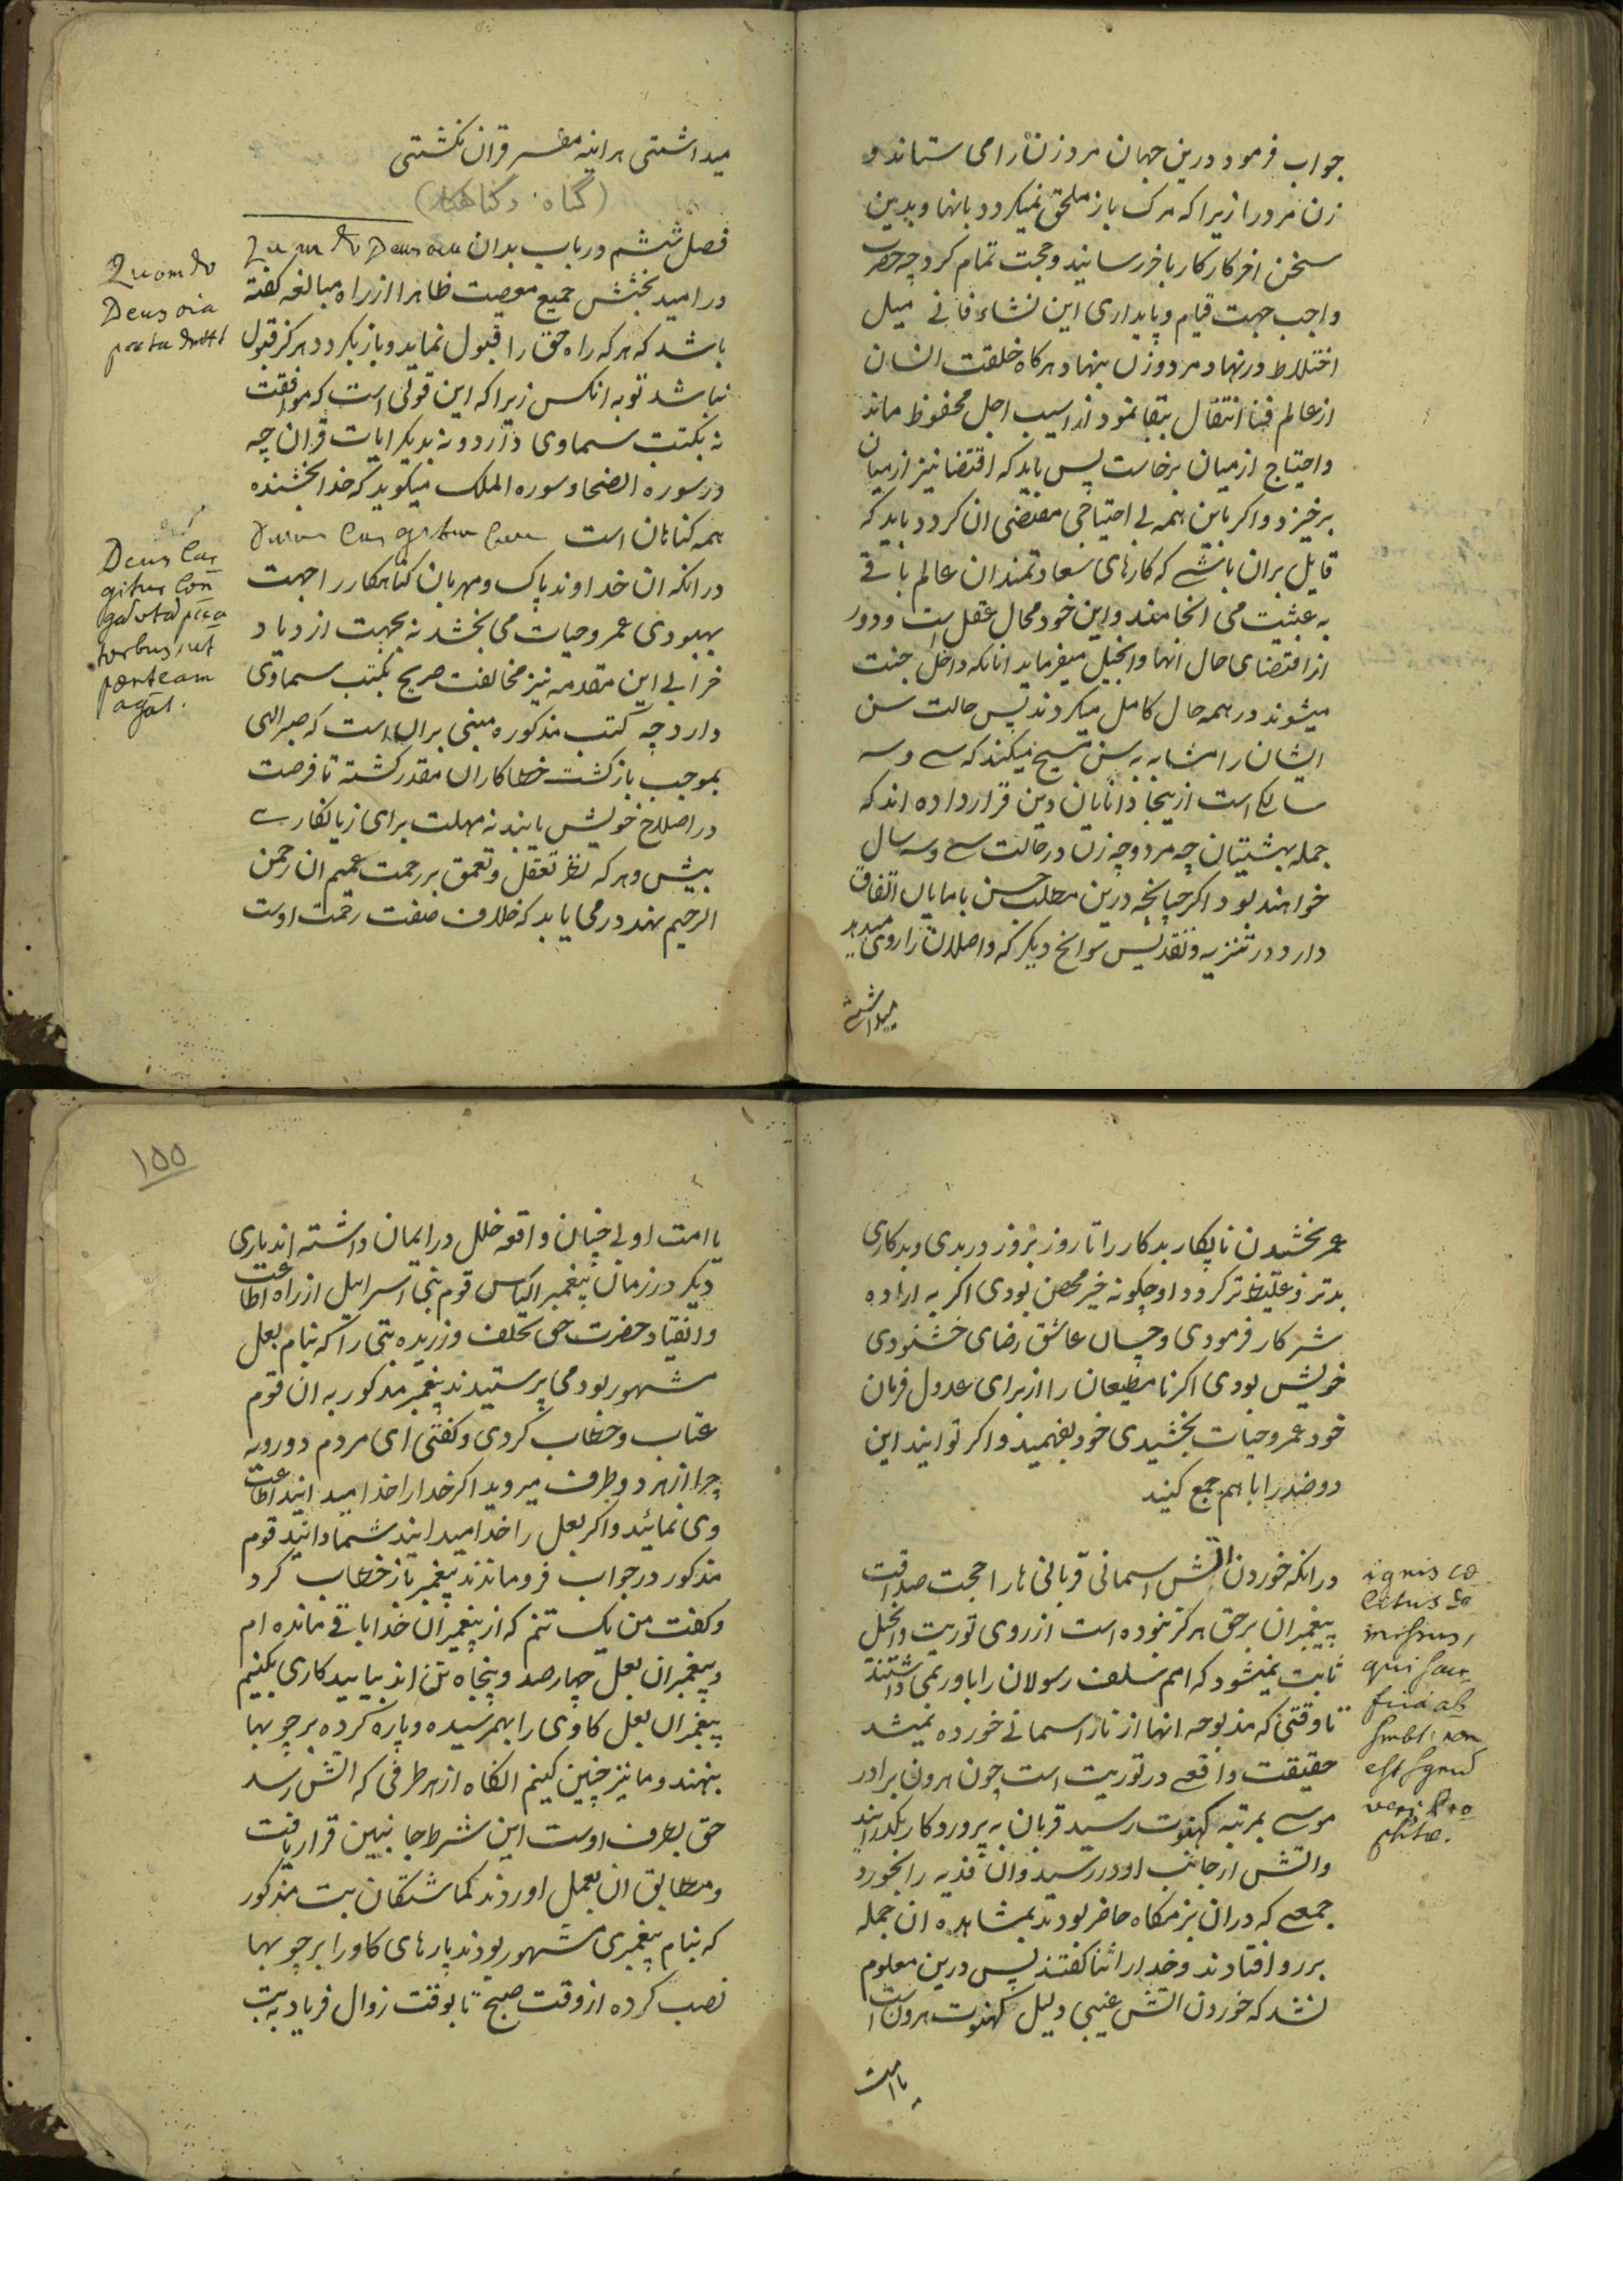 جواب فرمود درین جهان مرد زن را می ستاند و
زن مرد را زیرا که مرک باز ملحق نمیکردد بانها و بدین
سخن اخر کار کار باخر رسانید و حجت تمام کرد چه حضرت
واجب جهت قیام و پایداری این نشاء فانی میل
اختلاط در نهاد مرد و زن بنهاد هرکاه خلقت انسان
از عالم فنا انتقال ببقا نمود از اسیب اجل محفوظ ماند
و احتیاج از میان برخاست پس باید که اقتضا نیز از میان
برخیزد و اکر باین همه بی احتیاجی مقتضی ان کردد باید که
قایل بران باشی که کارهای سعادتمندان عالم باقی
به عبثیت می انجامند و این خود محال عقل است و دور
از اقتضای حال انها و انجیل میفرماید انانکه داخل جنت
میشوند در همه حال کامل میکردند پس حالت سن
ایشان را مشابه به سن مسیح میکند که سی و سه
سالکی است ازینجا دانایان دین قرار داده اند که
جمله بهشتیان چه مرد و چه زن در حالت سی و سه سال
خواهند بود اکر چنانچه درین مطلب حسن با مایان اتفاق
دارد در تنزیه و تقدیس سوانح دیکر که واصلان را روی میدهد
میداشتی
میداشتی هراینه مفسر قران نکشتی
(گناه و گناهکار)
فصل ششم در باب بدان
در امید بخشش جمیع معصیت ظاهرا از راه مبالغه کفته
باشد که هرکه راه حق را قبول نماید و باز بکردد هرکز قبول
نباشد توبه انکس زیرا که این قولی است که موافقت
نه بکتب سماوی دارد و نه بدیکر ایات قران چه
در سوره الضحا و سوره الملک میکوید که خدا بخشنده
همه کناهان است
در انکه ان خداوند پاک و مهربان کناهکار را جهت
بهبودی عمر و حیات می بخشد نه بجهت ازدیاد
خرابی این مقدمه نیز مخالفت صریح بکتب سماوی
دارد چه کتب مذکوره مبنی بران است که صبر الهی
بموجب بازکشت خطاکاران مقدر کشته تا فرصت
در اصلاح خویش یابند نه مهلت برای زیانکاری
بیش و هرکه نظر تعقل و تعمق بر رحمت عمیم ان رحمن
الرحیم نهد در می یابد که خلاف صفت رحمت اوست
Quomodo
Deus oia
Deus lar
gitur bon
pecca
toribus, ut
pœniteam
agat.
عمر بخشیدن نابکار بدکار را تا روز بروز در بدی و بدکاری
بدتر و غلیظ تر کردد او چکونه خیر محض بودی اکر به اراده
شر کار فرمودی و چسان عاشق رضای خشنودی
خویش بودی اکر نامطیعان را از برای عدول فرمان
خود عمر و حیات بخشیدی خود بفهمید و اکر توانید این
دو ضد را باهم جمع کنید
در انکه خوردن اتش اسمانی قربانی ها را حجت صداقت
پیغمبران برحق هرکز نبوده است از روی توریت و انجیل
ثابت نمیشود که امم سلف رسولان را باور نمی داشتند
تا وقتی که مذبوحه انها از نار اسمانی خورده نمیشد
حقیقت واقعی در توریت است چون هرون برادر
موسی بمرتبه کهنوت رسید قربان به پروردکار بکذرانید
و اتش از جانب او در رسید و ان فدیه را بخورد
جمعی که دران بزمکاه حاضر بودند بمشاهده ان جمله
بر رو افتادند و خدا را ثنا کفتند پس درین معلوم
نشد که خوردن اتش غیبی دلیل کهنوت هرون است
یا امت
ignis cœ
lestus
missus,
qui sacri
ficia ab
non
est signu
veri Pro
phetæ.
۱۵۵
یا امت او بی چنان واقعه خلل در ایمان داشته اند باری
دیکر در زمان پیغمبر الیاس قوم بنی اسرائیل از راه اطاعت
و انقیاد حضرت حق تخلف ورزیده بتی را که بنام بعل
مشهور بود می پرستیدند پیغمبر مذکور به ان قوم
عتاب و خطاب کردی و کفتی ای مردم دورویه
چرا از هر دو طرف میروید اکر خدا را خدا میدانید اطاعت
وی نمائید و اکر بعل را خدا میدانید شما دانید قوم
مذکور در جواب فروماندند پیغمبر باز خطاب کرد
و کفت من یک تنم که از پیغمبران خدا باقی مانده ام
و پیغمبران بعل چهار صد و پنجاه تن اند بیایید کاری بکنیم
پیغمبران بعل کاوی را بهم رسیده و پاره کرده بر چوبها
بنهند و ما نیز چنین کنیم انکاه از هر طرفی که اتش رسد
حق بطرف اوست این شرط جانبین قرار یافت
و مطابق ان بعمل اوردند کماشتکان بت مذکور
که بنام پیغمبری مشهور بودند پارهای کاو را بر چوبها
نصب کرده از وقت صبح تا بوقت زوال فریاد به بت